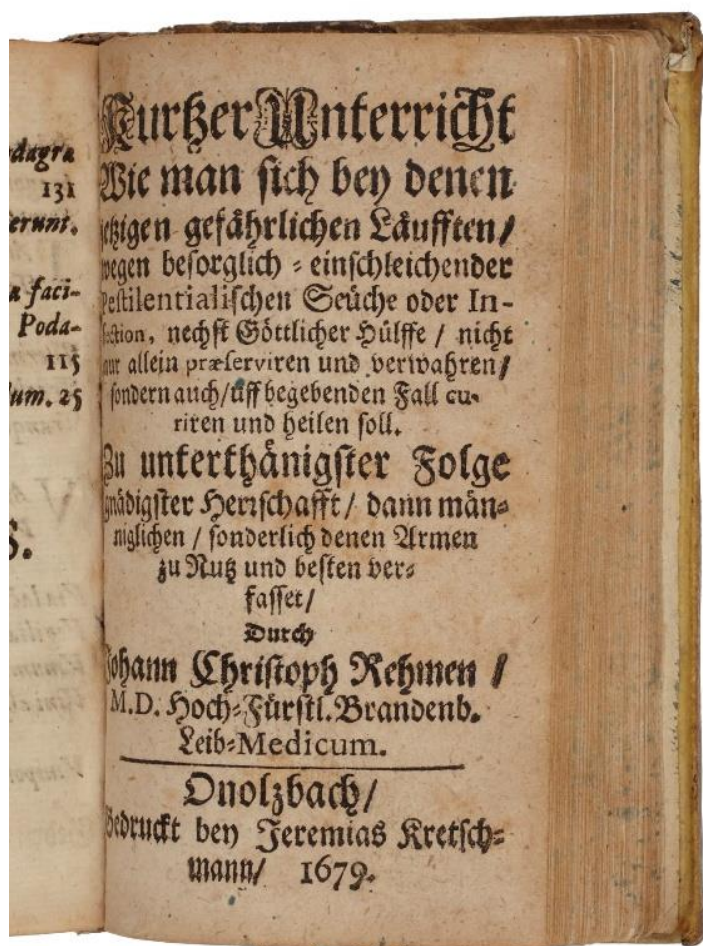 dagra
131
erunt.
a faci-
Poda-
115
dum. 25
S.
Kurtzer Unterricht
Wie man sich bey denen
jetzigen gefährlichen Läufften/
wegen besorglich = einschleichender
Pestilentialischen Seüche oder In-
fection, nechst Göttlicher Hülffe / nicht
nur allein præserviren und verwahren/
sondern auch/ uff begebenden Fall cu-
riren und heilen soll.
Zu unterthänigster Folge
gnädigster Herrschafft/ dann män-
niglichen / sonderlich denen Armen
zu Nutz und besten ver-
fasset/
Durch
Johann Christoph Rehmen /
M.D. Hoch-Fürstl. Brandenb.
Leib-Medicum.
Onolzbach/
Gedruckt bey Jeremias Kretsch-
mann/ 1679.